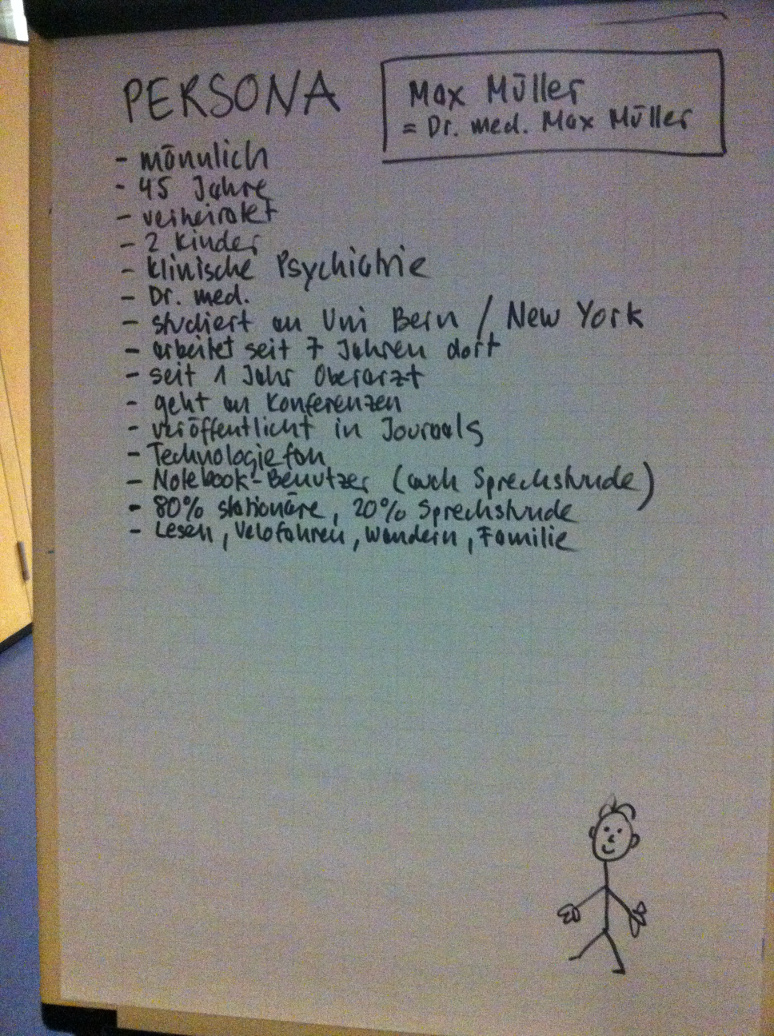 PERSONA
Max Müller
= Dr. med. Max Müller
- männlich
- 45 Jahre
- verheiratet
- 2 Kinder
- klinische Psychiatrie
- Dr. med.
- studiert an Uni Bern / New York
- arbeitet seit 7 Jahren dort
- seit 1 Jahr Oberarzt
- geht an Konferenzen
- veröffentlicht in Journals
- Technologiefan
- Notebook-Benutzer (auch Sprechstunde)
- 80% stationäre, 20% Sprechstunde
- Lesen, Velofahren, Wandern, Familie